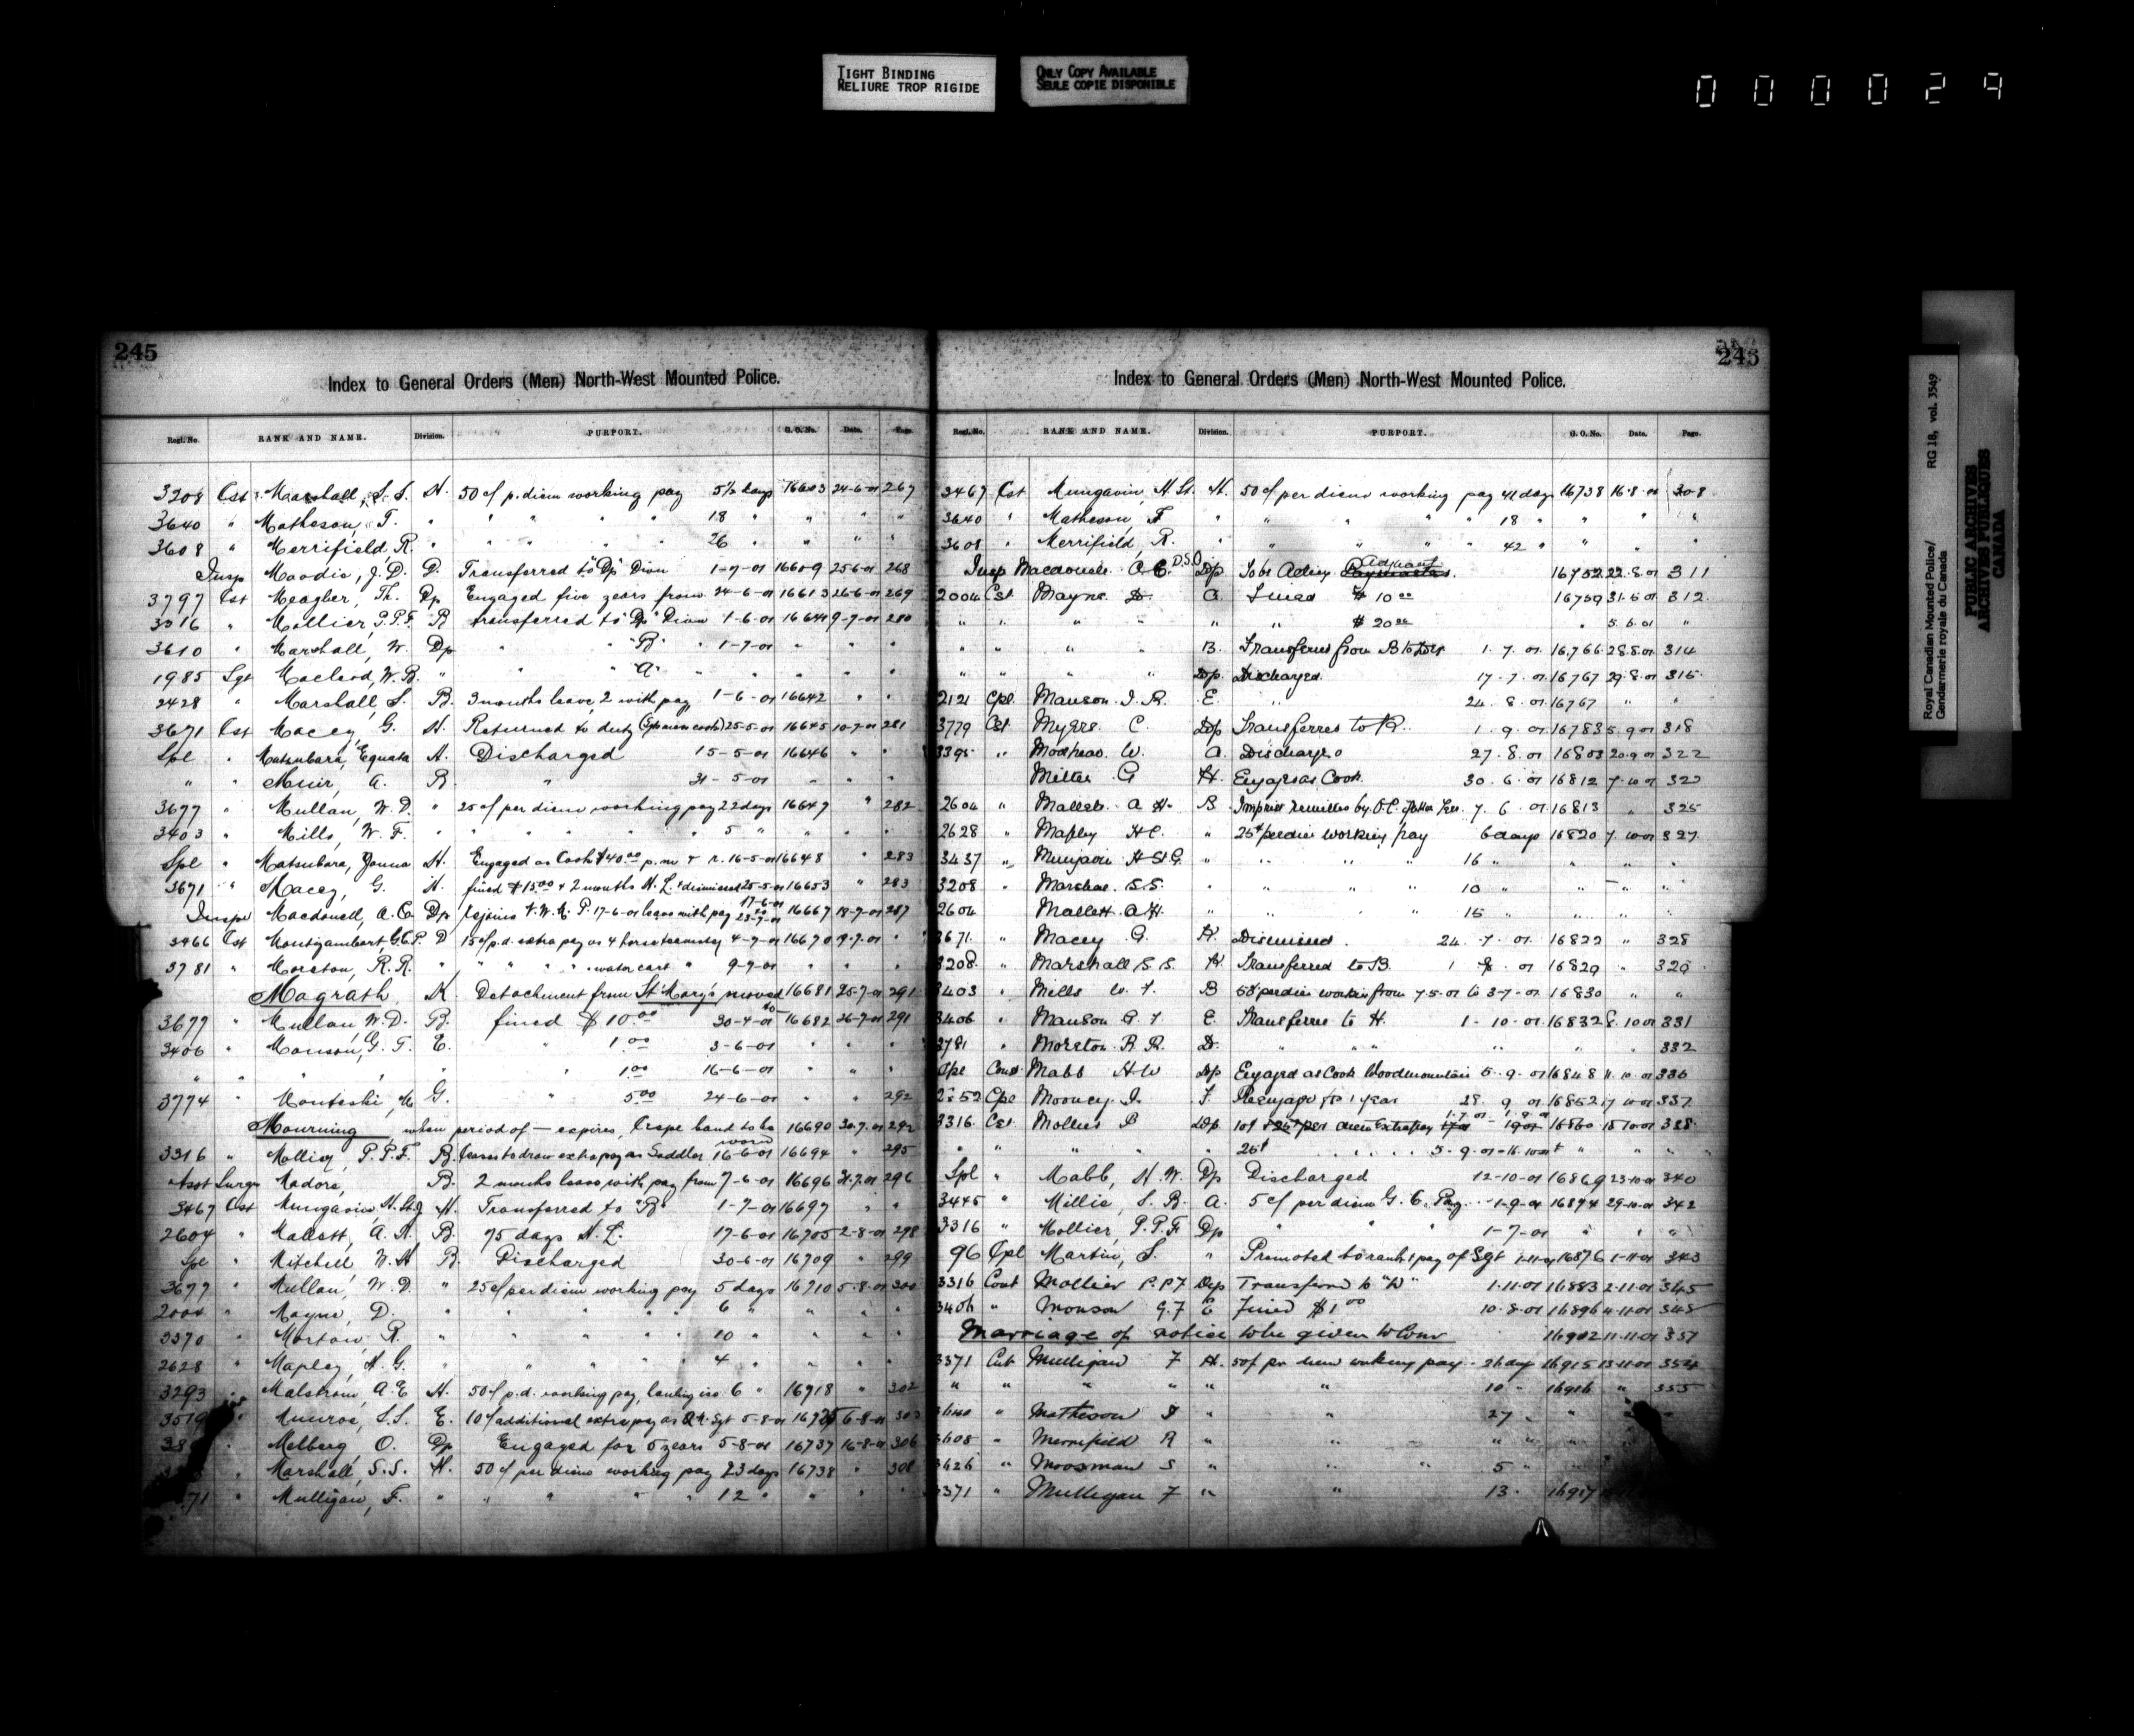 TIGHT BINDING
RELIURE TROP RIGIDE
ONLY COPY AVAILABLE
SEULE COPIE DISPONIBLE
000029
245
Index to General Orders (Men) North-West Mounted Police.
Regl. No. RANK AND NAME. Division. PURPORT. G.O. No. Date. Page.
3208 Cst Marshall, S.S. H. 50 c/ p. diem working pay 5½ days 16603 24-6-01 267
3640 " Matheson, F. " " " " " 18 " " " "
3608 " Merrifield, R. " " " " " 26 " " " "
Insp Moodie, J.D. D. Transferred to "Dp" Divn 1-7-01 16609 25-6-01 268
3797 Cst Meagher, Th. Dp Engaged five years from 24-6-01 16613 26-6-01 269
3316 " Mollier, P.P.F. B transferred to "Dp" Divn 1-6-01 16641 9-7-01 280
3610 " Marshall, W. Dp " "B" " 1-7-01 " " "
1985 Sgt Macleod, W.B. " " "A" " " " "
2428 " Marshall, S. B. 3 months leave, 2 with pay 1-6-01 16642 " "
3671 Cst Macey, G. H. Returned to duty 25-5-01 16645 10-7-01 281
Spl Matsubara, Equata H. Discharged 15-5-01 16646 " "
" " Muir, A. B. " 31-5-01 " " "
3677 " Mullan, W.D. " 25 c/ per diem working pay 22 days 16647 " 282
3403 " Mills, W.F. " " " " " 5 " " " "
Spl " Matsubara, H. Engaged as Cook $40.00 p.m. & r. 16-5-01 16648 " 283
3671 " Macey, G. H. fined $15.00 & 2 months H.L. & dismissed 25-5-01 16653 " 283
Inspr Macdonell, A.C. Dp rejoins N.W.M.P. 17-6-01 leave with pay 17-6-01 to 23-7-01 16667 18-7-01 287
3466 Cst Montizambert, G.C.P. D 15 c/ p.d. extra pay as 4 horse teamster 4-7-01 16670 19-7-01 "
3781 " Morston, R.R. " " " " " water cart " 9-7-01 " " "
Magrath, K. Detachment from St Mary's moved to 16681 25-7-01 291
3677 " Mullan, W.D. B. fined $10.00 30-4-01 16682 26-7-01 291
3406 " Monson, G.F. E. " 1.00 3-6-01 " " "
" " " " " 1.00 16-6-01 " " "
3774 " G. " 5.00 24-6-01 " " 292
Mourning when period of — expires, Crape band to be worn 16690 30-7-01 292
3316 " Mollier, P.P.F. B. ceases to draw extra pay as Saddler 16-6-01 16694 " 295
Asst Surgn Madore, B. 2 months leave with pay from 7-6-01 16696 31-7-01 296
3467 Cst Mungavin, H.St.G. H. Transferred to "B" 1-7-01 16697 " "
2604 " Mallett, A.H. B. 75 days H.L. 17-6-01 16705 2-8-01 298
Spl " Mitchell W.H B. Discharged 30-6-01 16709 " 299
3677 " Mullan, W.D. " 25 c/ per diem working pay 5 days 16710 5-8-01 300
2004 " Mayne, D. " " " " " 6 " " " "
3370 " Morton, R. " " " " " 10 " " " "
2628 " Mapley, H.G. " " " " " 4 " " " "
3293 " Malstrom, A.E. H. 50 c/ p.d. working pay, 6 " 16718 " 302
3519 " Munroe, S.S. E. 10 c/ additional extra pay as Q.M. Sgt 5-8-01 6-8-01
" Melberg, O. Dp Engaged for 5 years 5-8-01 16737 16-8-01 306
" Marshall, S.S. H. 50 c/ per diem working pay 23 days 16738 " 308
71 " Mulligan, F. " " " " " 12 " " " "
245
Index to General Orders (Men) North-West Mounted Police.
Regl. No. RANK AND NAME. Division. PURPORT. G.O. No. Date. Page.
3467 Cst Mungavin, H.St. H. 50 c/ per diem working pay 41 days 16738 16-8-01 308
3640 " Matheson, F " " " " " 18 " " " "
3608 " Merrifield, R. " " " " " 42 " " " "
Insp Macdonell A.C. D.S.O Dp To be Acting Adjutant 16752 22.8.01 311
2004 Cst Mayne D. A. Fined $10.00 16759 31.5.01 312
" " " " " " $20.00 " 5.6.01 "
" " " " B. Transferred from B to 1.7.01 16766 28.8.01 314
" " " " Dp. Discharged 17.7.01 16767 29.8.01 315
2121 Cpl Manson J.R. E. " 24.8.01 16767 " "
3779 Cst Myers C. Dp Transferred to K. 1.9.01 16783 5.9.01 318
3395 " W. A. Discharged 27.8.01 16803 20.9.01 322
Miller G H. Engaged as Cook 30.6.01 16812 7.10.01 323
2604 " Mallett A H. B 7.6.01 16813 " 325
2628 " Mapley H C. " 25¢ perdiem working pay 6 days 16820 7.10.01 327
3437 " Mungavin H St G. " " " " 16 " " " "
3208 " Marshall S.S. " " " " 10 " " " "
2604 " Mallett A H. " " " 15 " " " "
3671 " Macey G. H. Dismissed. 24.7.01 16822 " 328
3208 " Marshall S.S. H Transferred to B. 1.8.01 16829 " 329
3403 " Mills W.F. B 50¢ perdiem working from 7.5.01 to 3-7-01 16830 " "
3406 " Manson G F E. Transferred to H. 1-10-01 16832 8.10.01 331
3781 " Morston R R. D. " " " " " " 332
Spl Const Mabb H W Dp Engaged as Cook Woodmountain 5.9.01 16848 11.10.01 336
2252 Cpl Mooney J. F. Reengaged for 1 year 28.9.01 16852 17.10.01 337
3316 Cst Mollier P Dp 16860 18.10.01 338
" " " " 25¢ " 5-9-01-16.10.01 " " "
Spl " Mabb, H.W. Dp Discharged 12-10-01 16869 23-10-01 340
3445 " Millie, S.B. A. 5 c/ per diem G.C. Pay 1-9-01 16874 29-10-01 342
3316 " Mollier, P.P.F Dp " " " 1-7-01 " " "
96 Cpl Martin, S. " Promoted to rank & pay of Sgt 1-11-01 16876 1-11-01 343
3316 Cont Mollier P.P.F Dep Transferred to "D" 1.11.01 16883 2.11.01 345
3406 " Monson G.F E Fined $1.00 10.8.01 16896 4.11.01 348
Marriage of notice to be given to Comr 16902 11.11.01 351
3371 Cst Mulligan F H. 50¢ per diem working pay 26 day 16915 13.11.01 354
" " " " " " 10 " 16916 " 355
3640 " Matheson F " " 27 " " "
3608 " Merrifield R " " " " " "
3626 " Moosman S " " " 5 " "
3371 " Mulligan F " " 13. 16917
Royal Canadian Mounted Police/ RG 18, vol. 3549
Gendarmerie royale du Canada
PUBLIC ARCHIVES
ARCHIVES PUBLIQUES
CANADA